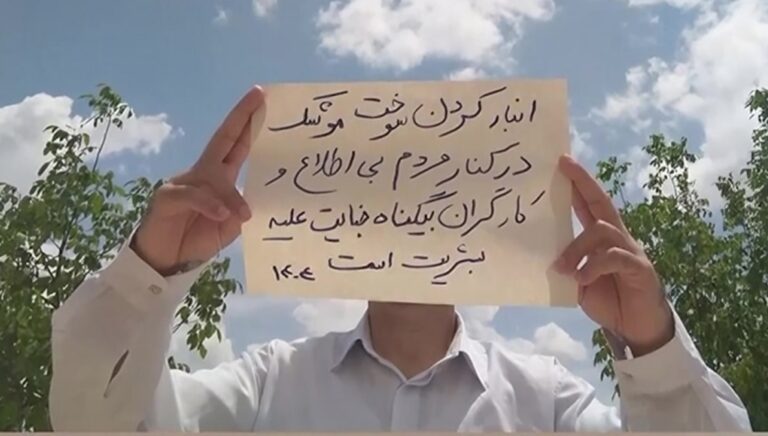 انبار کردن سوخت موشک
در کنار مردم بی اطلاع و
کارگران بیگناه جنایت علیه
بشریت است ۱۴۰۴